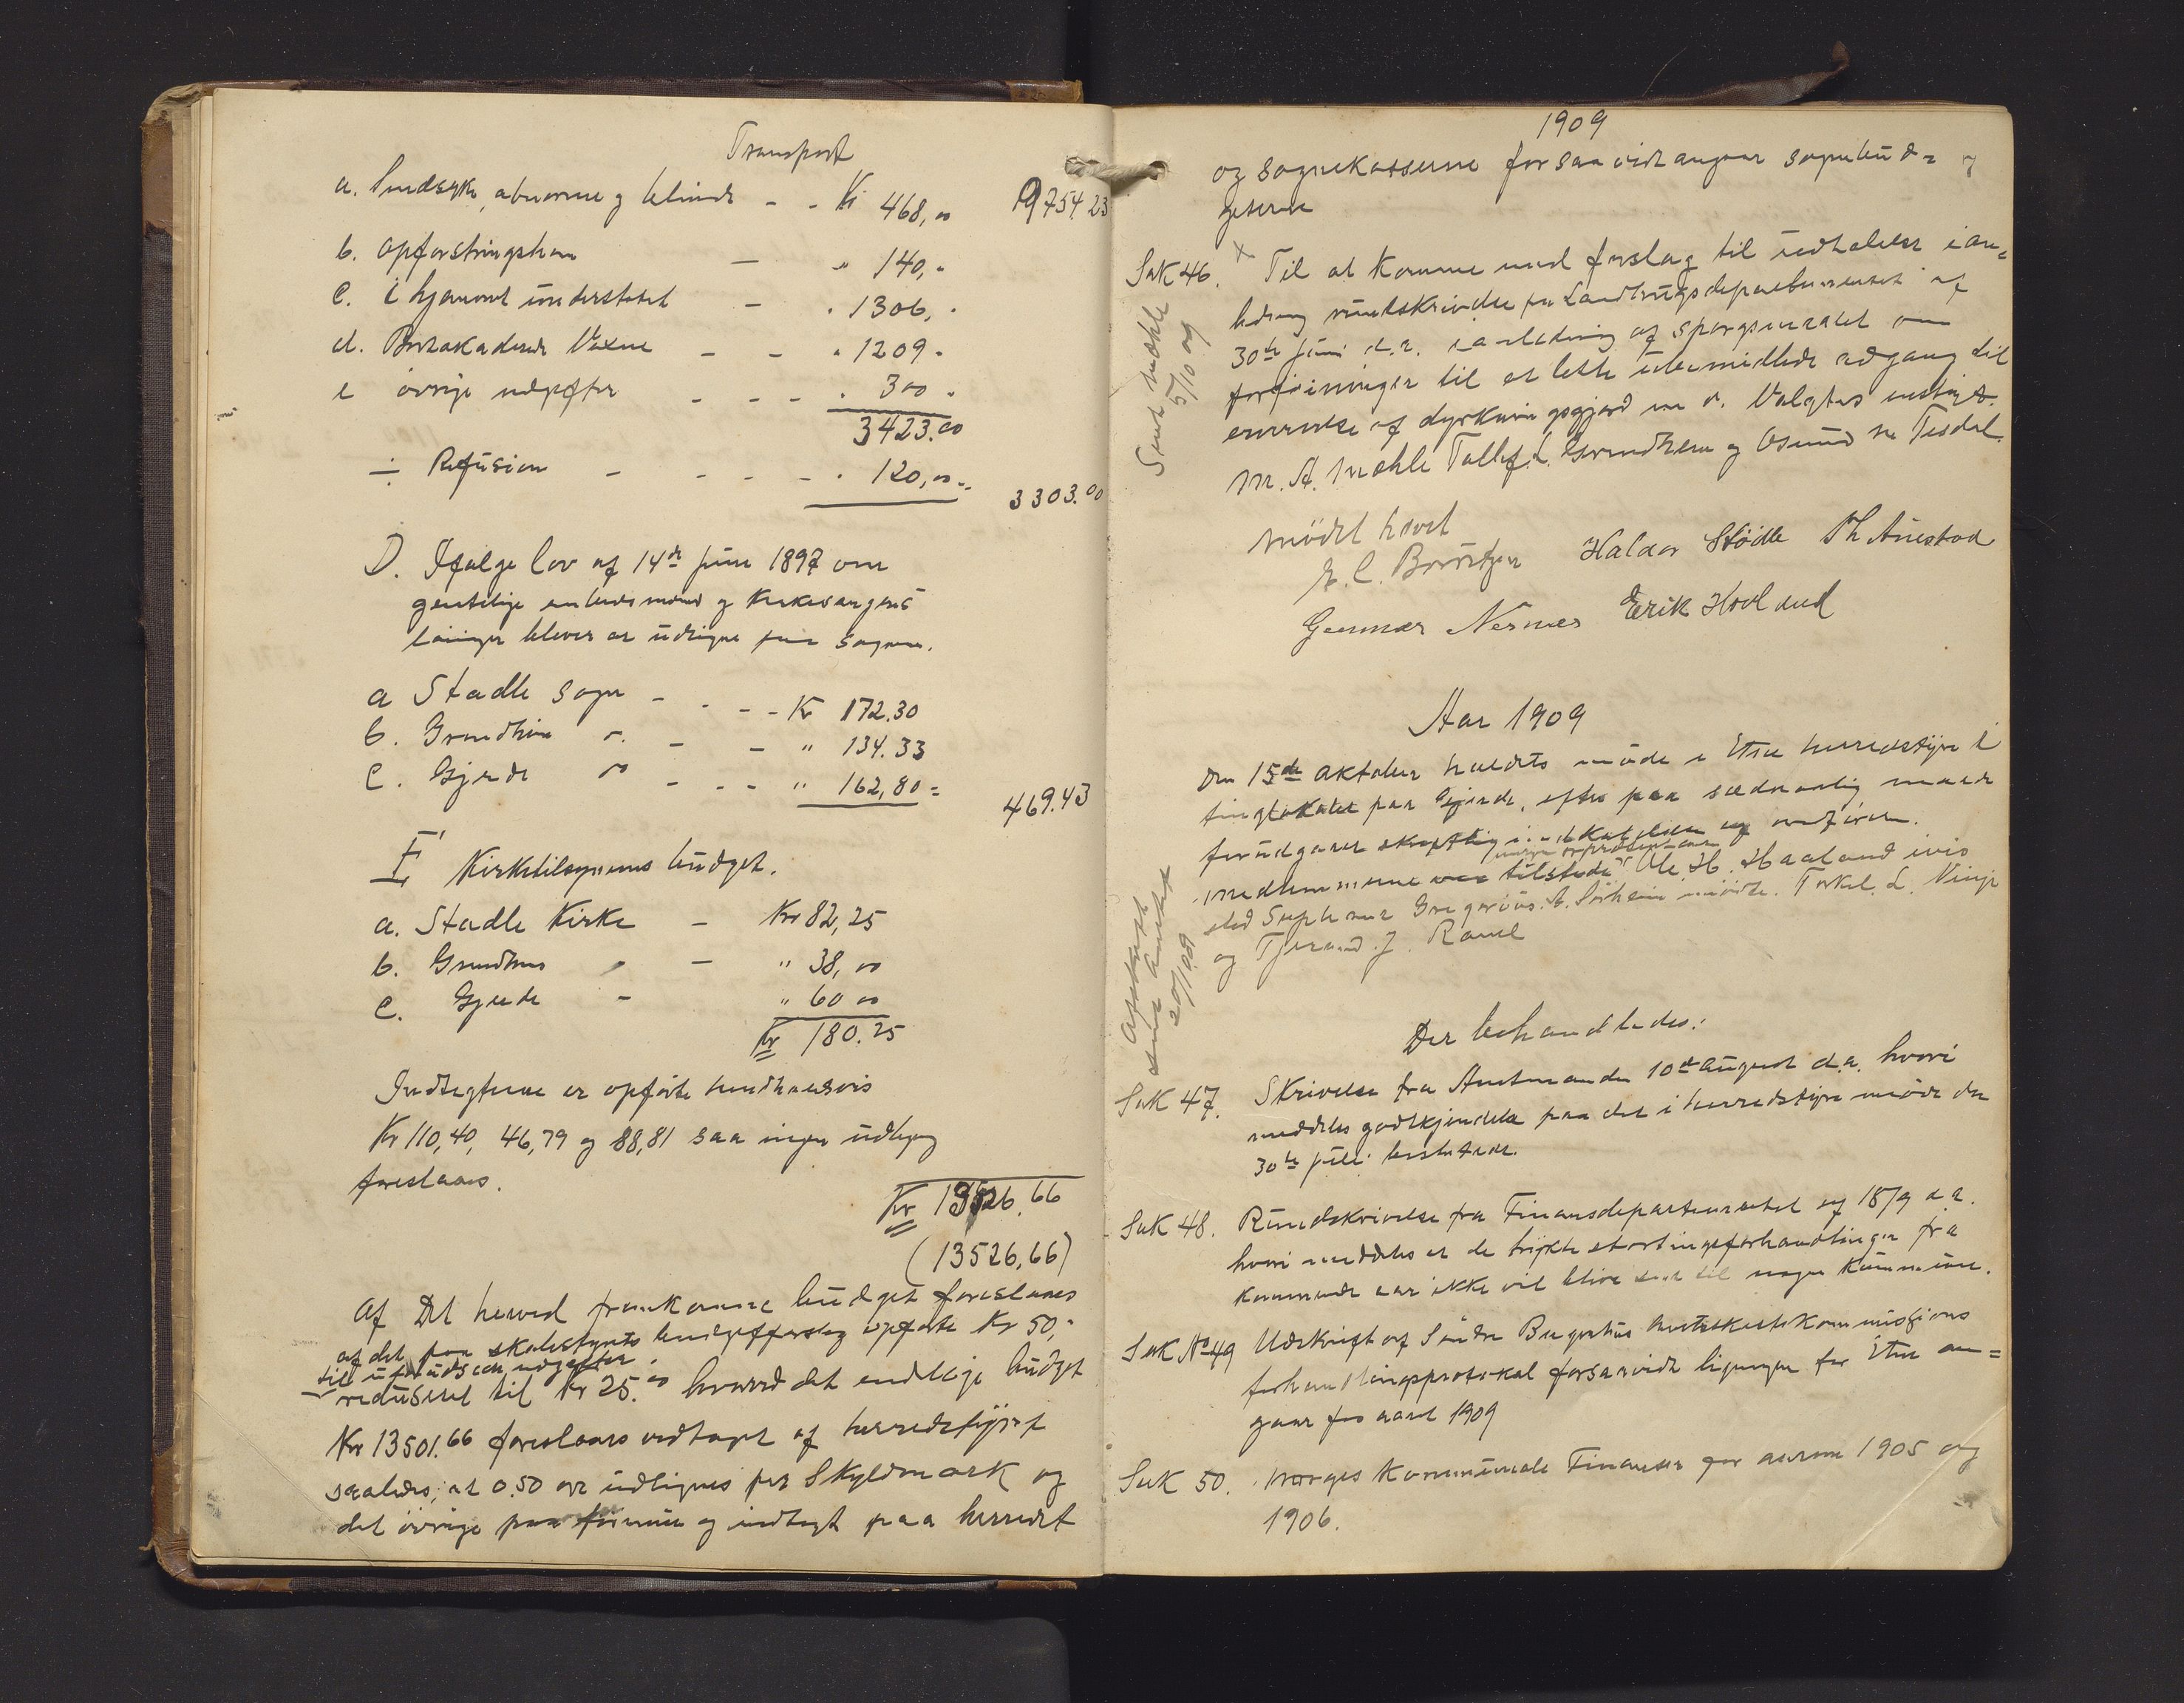 Transport
a. Sindsyke, abnorme og blinde - - Kr 468,00 9754 23
b. Opfostringshem — " 140,-
c. i hjemmet understøtet — " 1306,-
d. Bortakaderede Voxne - - " 1209-
e øvrige udgifter - - - " 300-
3423.00
÷ Refusion - - - - " 120,00 = 3303.00
D. Ifølge lov af 14de juni 1897 om
geistelige embedsmænd og Kirkesangeres
lønninger bliver at udrigne paa Sognene.
a Stødle sogn - - - - Kr 172.30
b. Grindheim " - - " 134.33
c. Gjerde " - - - " 162,80 = 469.43
E Kirketilsynenes büdget.
a. Stødle Kirke - Kr 82,25
b. Grindheim " — " 38,00
c. Gjerde - " 60 00
Kr 180.25
Indtegterne er opførte henholdsvis
Kr 110,40, 46,79 og 88,81 saa ingen udligning
foreslaaes.
Kr 13526.66
(13526,66)
Af Det herved fremkomne büdget foreslaaes
af det paa skolestyrets budgetforslag opførte Kr 50,-
til uforudseede udgifter
reduseret til Kr 25.00 hvorved det endelige büdget
Kr 13501.66 foreslaaes vedtaget af herredstyret
saaledes, at 0.50 øre udlignes per Skyldmark og
det øvrige paa formue og indtægt paa herredet
1909
og sognekasserne forsaavidt angaar sognebüd=
geterne
Sak 46. x Til at komme med forslag til udtalelse i an=
ledning rundskrivelse fra Landbrugsdepartementet af
30te juni d.a. i anledning af spørgsmaalet om
forføininger til at lette ubemidlede adgang til
erværvelse af dyrkningsjord m. v. Valgtes enstigt.
M. A. Mæhle Tollef. L. Grindheim og Osmund M. Tesdal.
Sendt Mæhle
5/10 09
Mødet hævet
E. C. Børretzen Haldor Stødle Th Austad
Gunnar Nernæs Erik Hovland
Aar 1909
Den 15de Oktober holdtes møde i Etne herredstyre i
tinglokalet paa Gjerde, efter paa sædvanlig maade
forudgaaet skriftlig indkaldelse og
medlemmerne var tilstede Ole H. Haaland ivis
sted Suplerant Gregorius A. Sørheim mødte. Torkel L. Vinje
og Tjerand J. Ravel
Afskrift
sendt Amtet
20/10 09
Der behandledes:
Sak 47. Skrivelse fra Amtmanden 10de august d.a. hvori
meddeles godkjendelse paa det i herredstyre møde den
30te juli besluttede.
Sak 48. Rundskrivelse fra Finansdepartementet af 18/9 d a.
hvori meddeles at de trykte stortingsforhandlinger fra
kommende aar ikke vil blive sendt til nogen Kommune.
Sak No 49 Udskrift af Søndre Bergenhus amtsskattekommissions
forhandlingsprotokol forsaavidt ligningen for Etne an=
gaar for aaret 1909
Sak 50. Norges Kommunale Finanser for aarene 1905 og
1906.